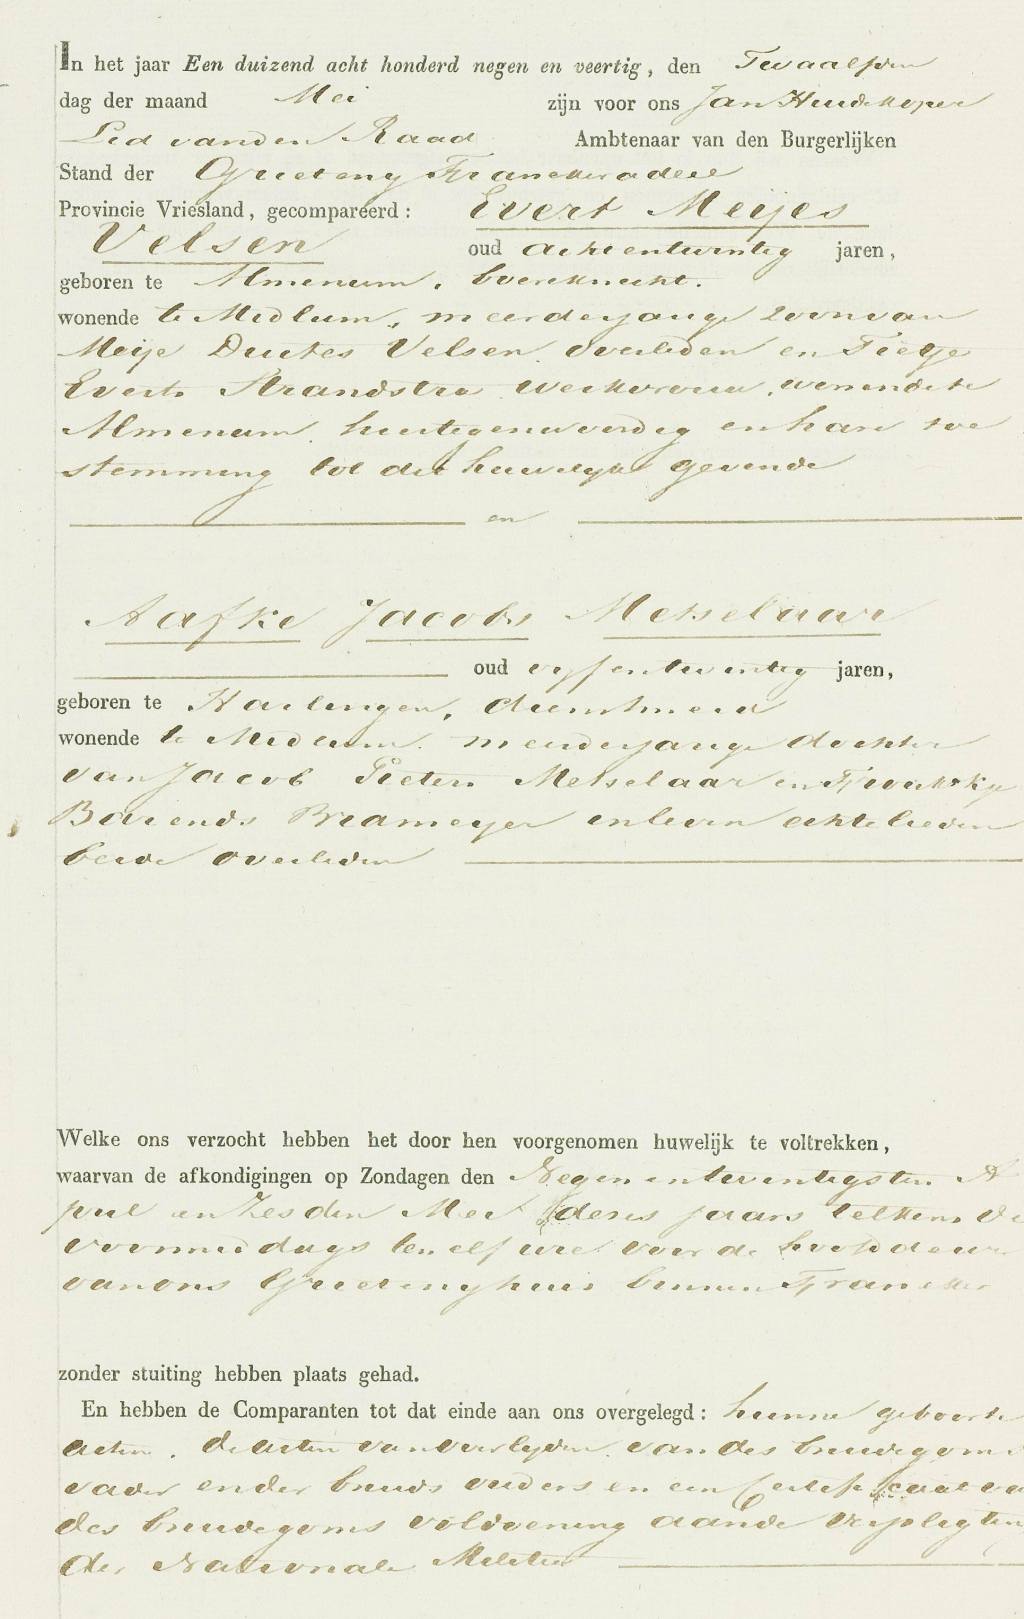 In het jaar Een duizend acht honderd negen en veertig, den Twaalfden
dag der maand Mei zijn voor ons Jan Huidekoper
Lid van den Raad Ambtenaar van den Burgerlijken
Stand der Grieteny Franekeradeel
Provincie Vriesland, gecompareerd: Evert Meijes
Velsen oud achtentwintig jaren,
geboren te Almenum, boereknecht.
wonende te Midlum, meerderjarige zoon van
Meije Velsen, overleden en Tietje
Everts Strandstra werkvrouw, wonende te
Almenum, hiertegenwoordig en hare toe
stemming tot dit huwelijk gevende
en
Aafke Jacobs Metselaar
oud vyfentwintig jaren,
geboren te Harlingen, dienstmeid
wonende te Midlum, meerderjarige dochter
van Jacob Pieters Metselaar en
Barends Brameyer in leven echtelieden
beide overleden
Welke ons verzocht hebben het door hen voorgenomen huwelijk te voltrekken,
waarvan de afkondigingen op Zondagen den Negenentwintigsten A
pril en Zesden Mei dezes jaars telkens des
voormiddags ten elf ure voor de hoofddeur
van ons Grietenyhuis binnen Franeker
zonder stuiting hebben plaats gehad.
En hebben de Comparanten tot dat einde aan ons overgelegd: hunne geboorte
acten, de acten van overlyden van des bruidegoms
vader en der bruids ouders en een Certificaat va
des bruidegoms voldoening aan de verpligting
der Nationale Militie